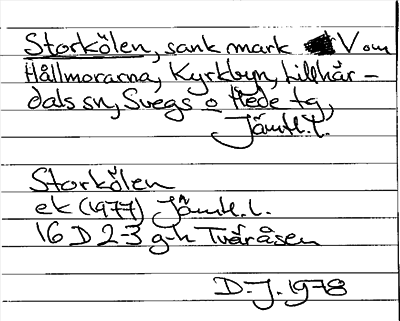 Storkölen, sank mark V om
Hållmorarna, Kyrkbyn, Lillhär-
dals sn, Svegs o Hede tg,
Jämtl.l.
Storkölen
ek (1977) Jämtl.l.
16 D 2-3 g-h Tväråsen
D.J. 1978